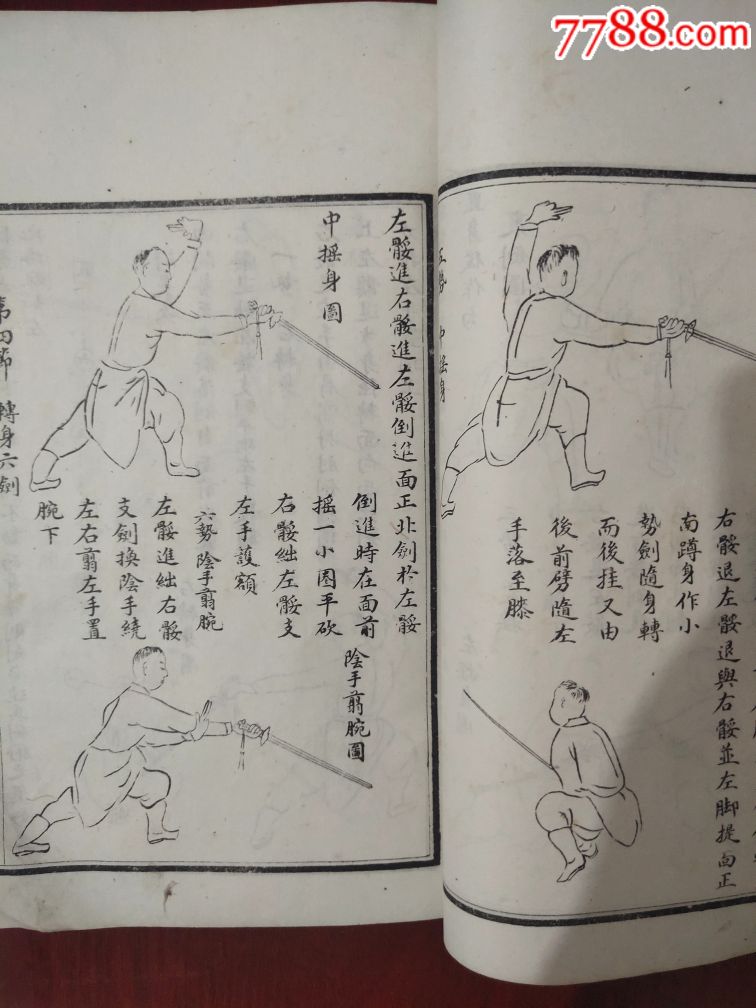 7788.com
右骽退左骽退與右骽並左脚提向正
南蹲身作小
勢劍隨身轉
而後挂又由
後前劈隨左
手落至膝
五勢 中摇身
左骽進右骽進左骽倒進面正北劍於左骽
倒進時在面前
摇一小圈平砍
右骽絀左骽支
左手護額
中摇身圖
六勢 陰手翦腕
左骽進絀右骽
支劍換陰手繞
左右翦左手置
腕下
陰手翦腕圖
第四節 轉身六劍